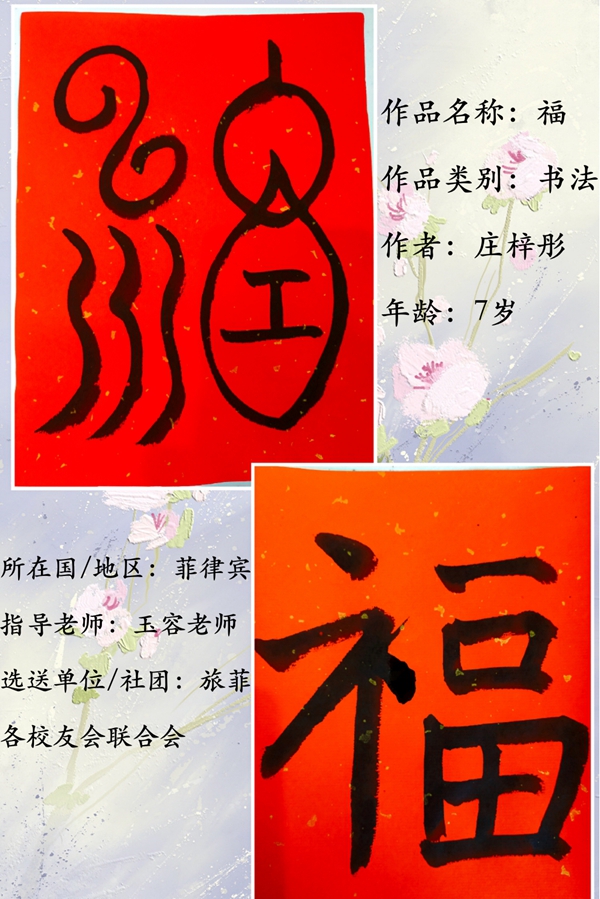 作品名称：福
作品类别：书法
作者：庄梓彤
年龄：7岁
所在国/地区：菲律宾
指导老师：王容老师
选送单位/社团：旅菲
各校友会联合会
福